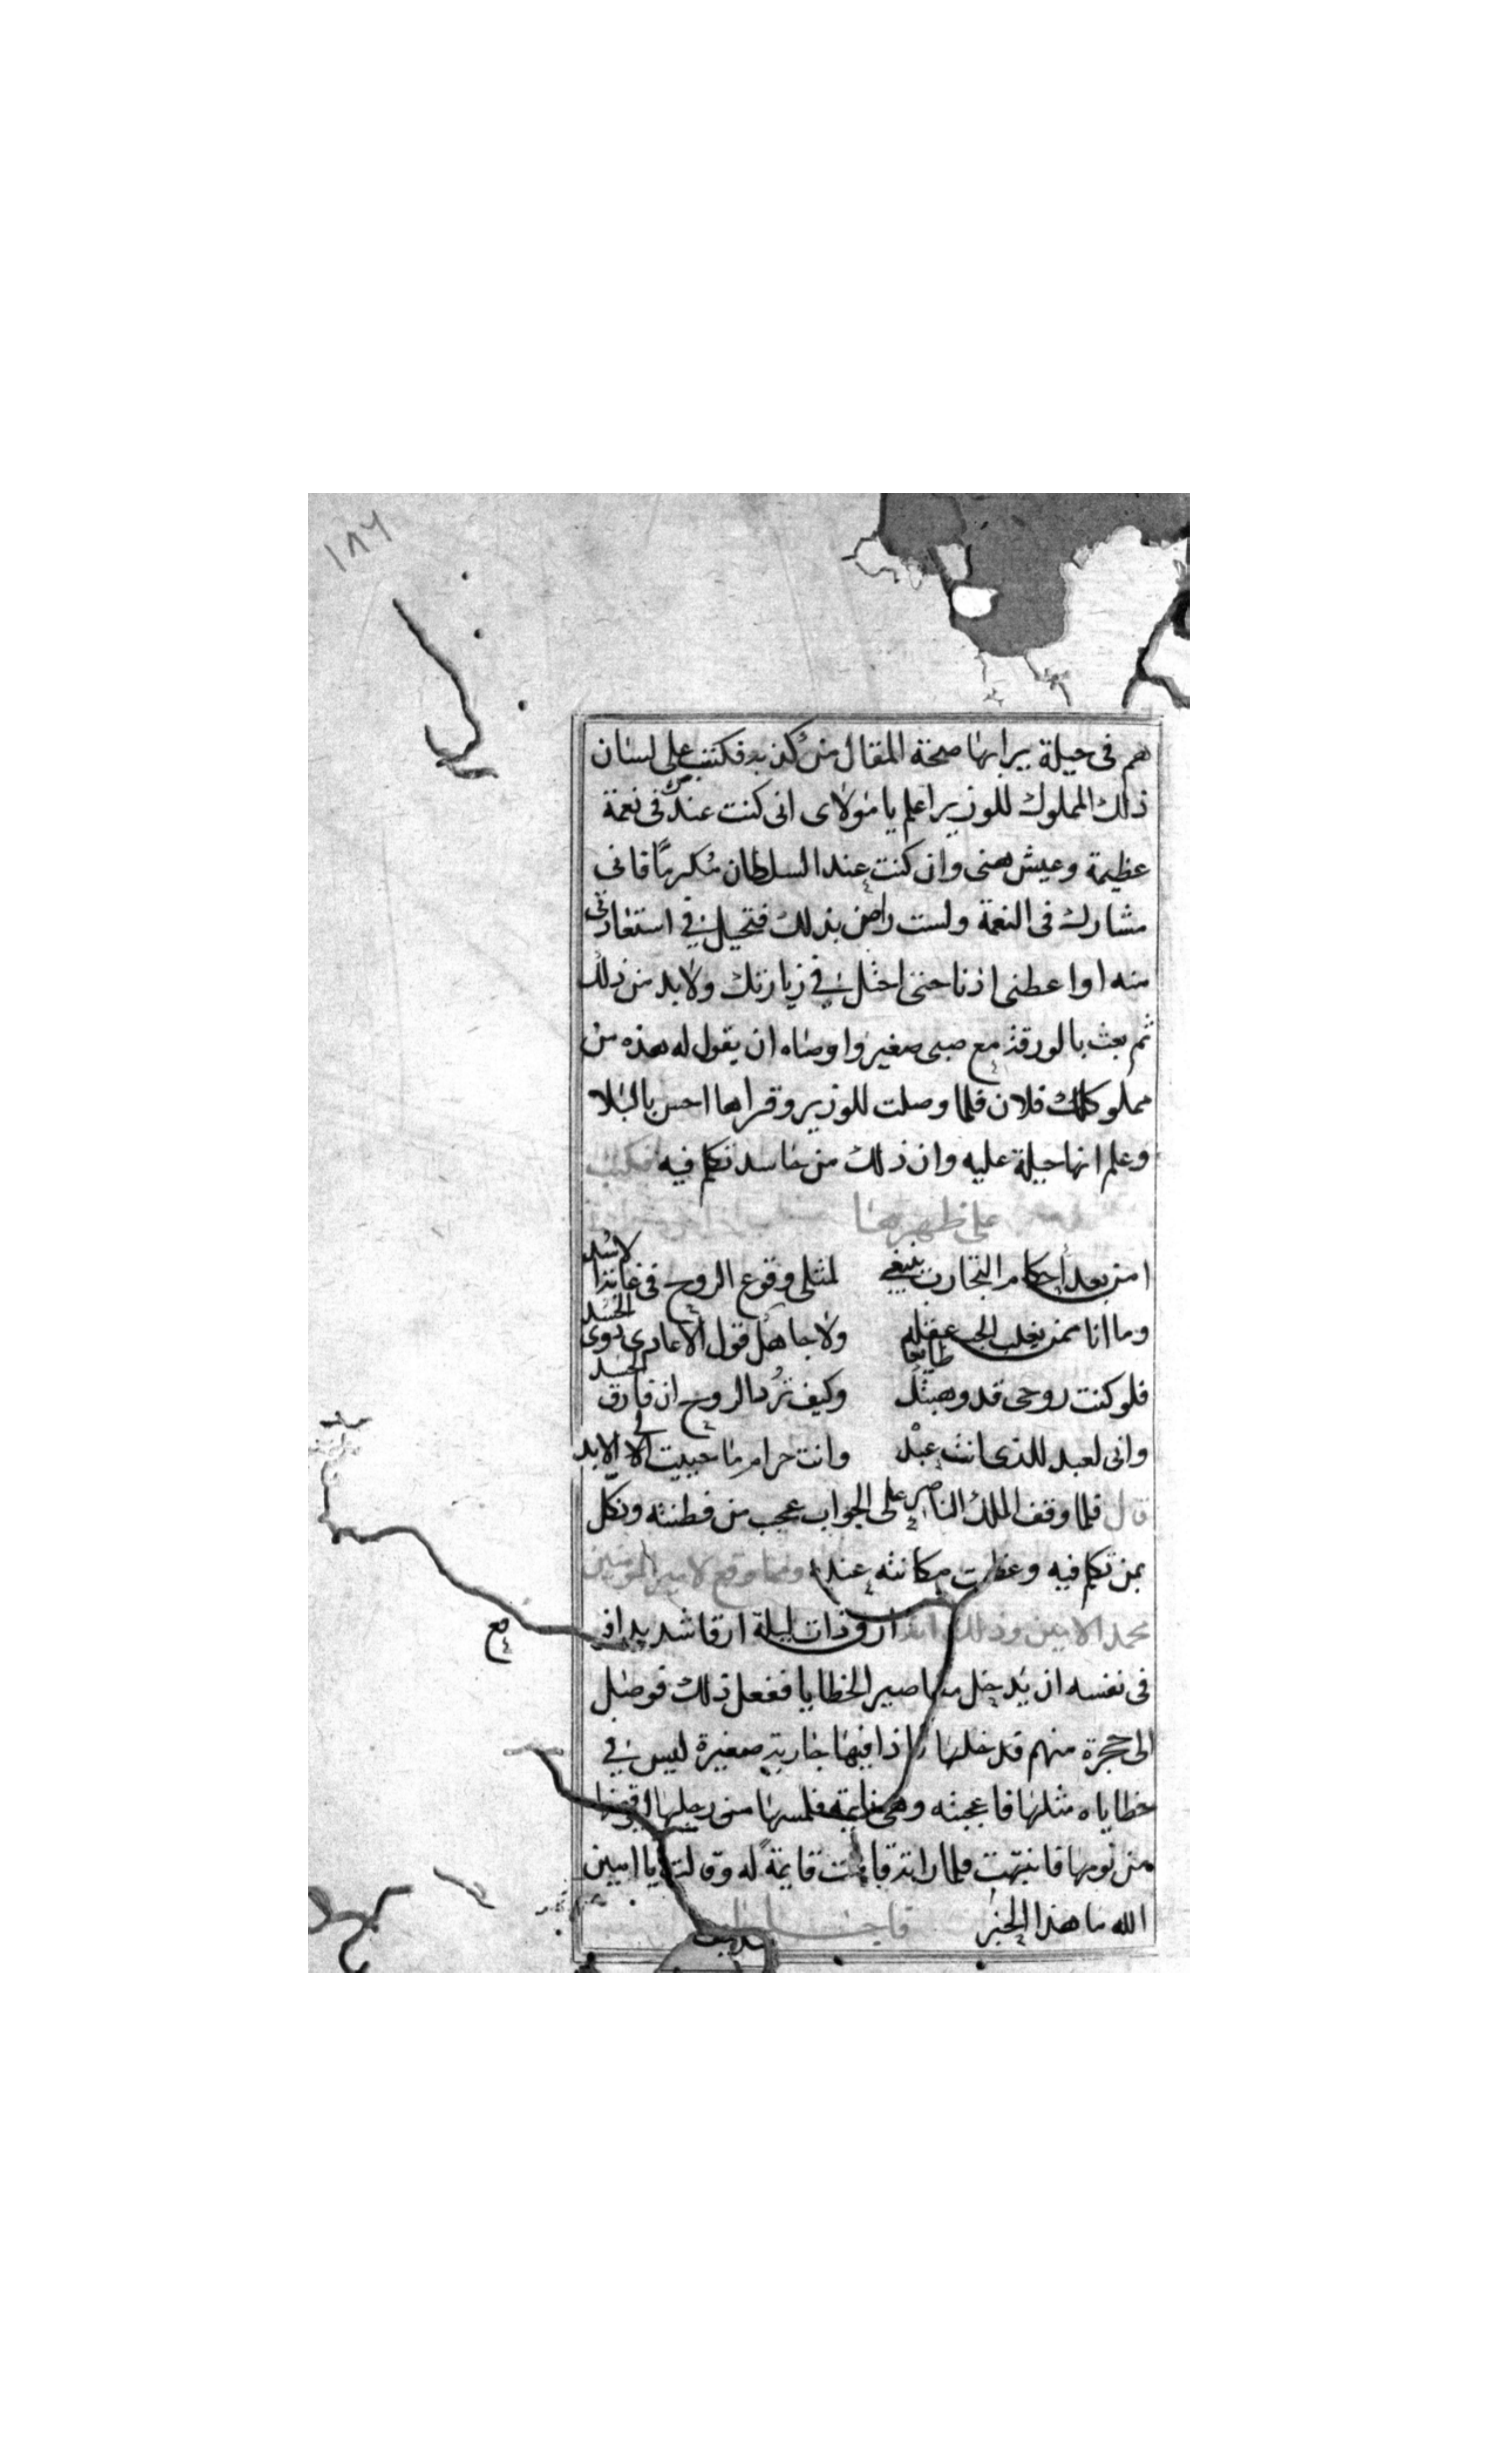 ١٨٦
هم فى حيلة يرا بها صحة المقال من كذبه فكتب على لسان
ذلك المملوك للوزير اعلم يا مولاى انى كنت عندك فى نعمة
عظيمة وعيش هنى وان كنت عند السلطان مكرمًا فانى
مشارك فى النعمة ولست راض بذلك فتحيل فى استعادتى
منه او اعطنى اذنا حتى احتل فى زيارتك ولا بد من ذلك
ثم بعث بالورقة مع صبى صغير واوصاه ان يقول له هذه من
مملوكك فلان فلما وصلت للوزير وقراها احس بالبلا
وعلم انها حيلة عليه وان ذلك من حاسد تكلم فيه فكتب
على ظهرها
امن بعد احكام التجارب ينبغى لمثلى وقوع الروح فى غابة الاسد
وما انا ممن يغلب الحب عقله ولا جاهل قول الاعادى ذوى الحسد
فلو كنت روحى قد وهبتك طايعا وكيف ترد الروح ان فارق الجسد
وانى لعبد للذى انت عبده وانت حرام ما حييت لى الى الابد
قال فلما وقف الملك الناصر على الجواب عجب من فطنته ونكل
بمن تكلم فيه وعظمت مكانته عنده ومما وقع لامير المومنين
محمد الامين وذلك انه ارق ذات ليلة ارقا شديدا فوقع
فى نفسه ان يدخل مقاصير الحظايا ففعل ذلك فوصل
الى حجرة منهم فدخلها واذا فيها جارية صغيرة ليس فى
حظاياه مثلها فاعجبته وهى نايمة فلمسها من رجلها
من نومها فانتبهت فلما راته قامت قايمة له وقالت يا امين
الله ما هذا الخبر